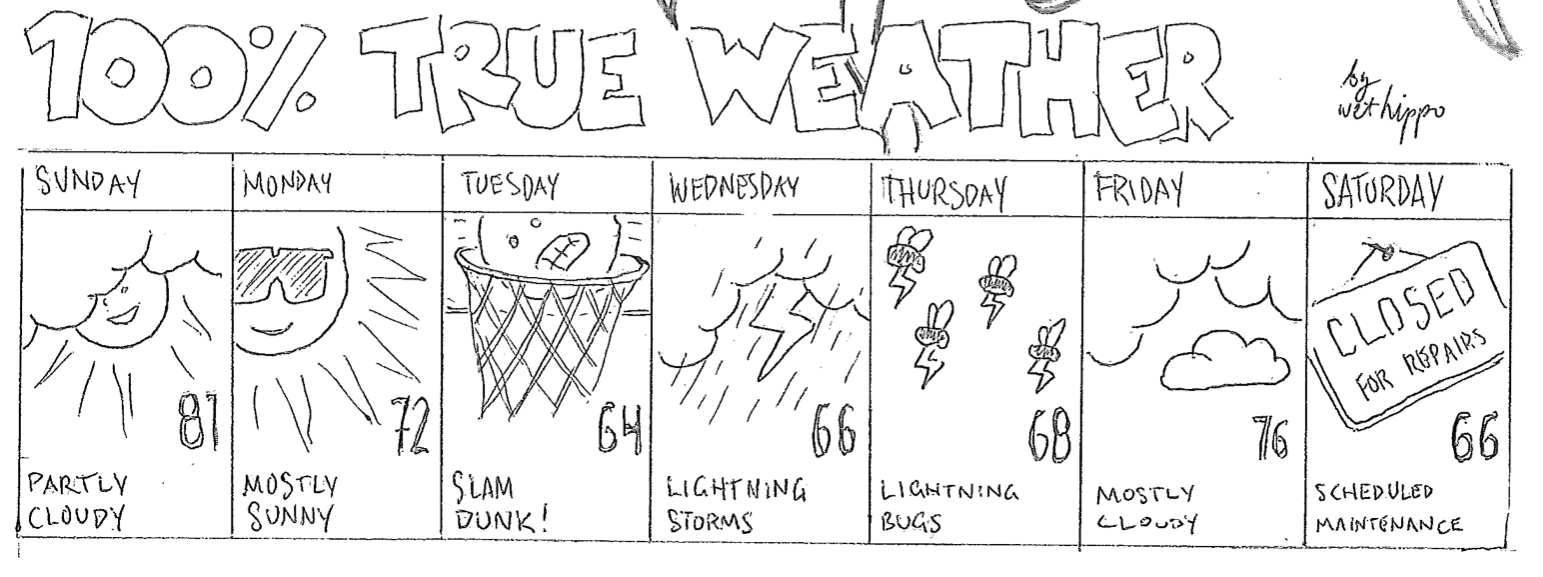 100% TRUE WEATHER
by
wet hippo
SUNDAY
MONDAY
TUESDAY
WEDNESDAY
THURSDAY
FRIDAY
SATURDAY
81
PARTLY
CLOUDY
72
MOSTLY
SUNNY
64
SLAM
DUNK!
66
LIGHTNING
STORMS
68
LIGHTNING
BUGS
76
MOSTLY
CLOUDY
CLOSED
FOR REPAIRS
66
SCHEDULED
MAINTENANCE